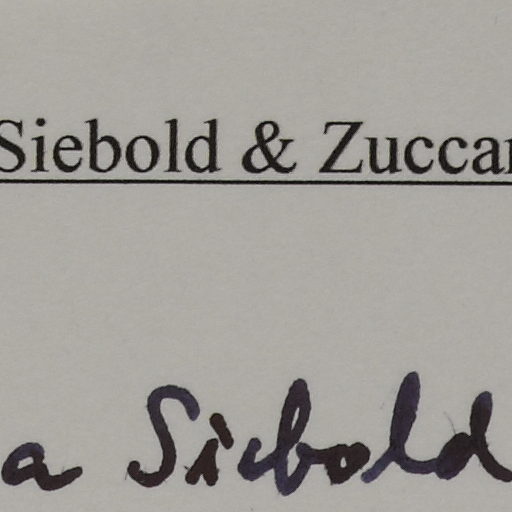 Siebold & Zuccar
a Siebold